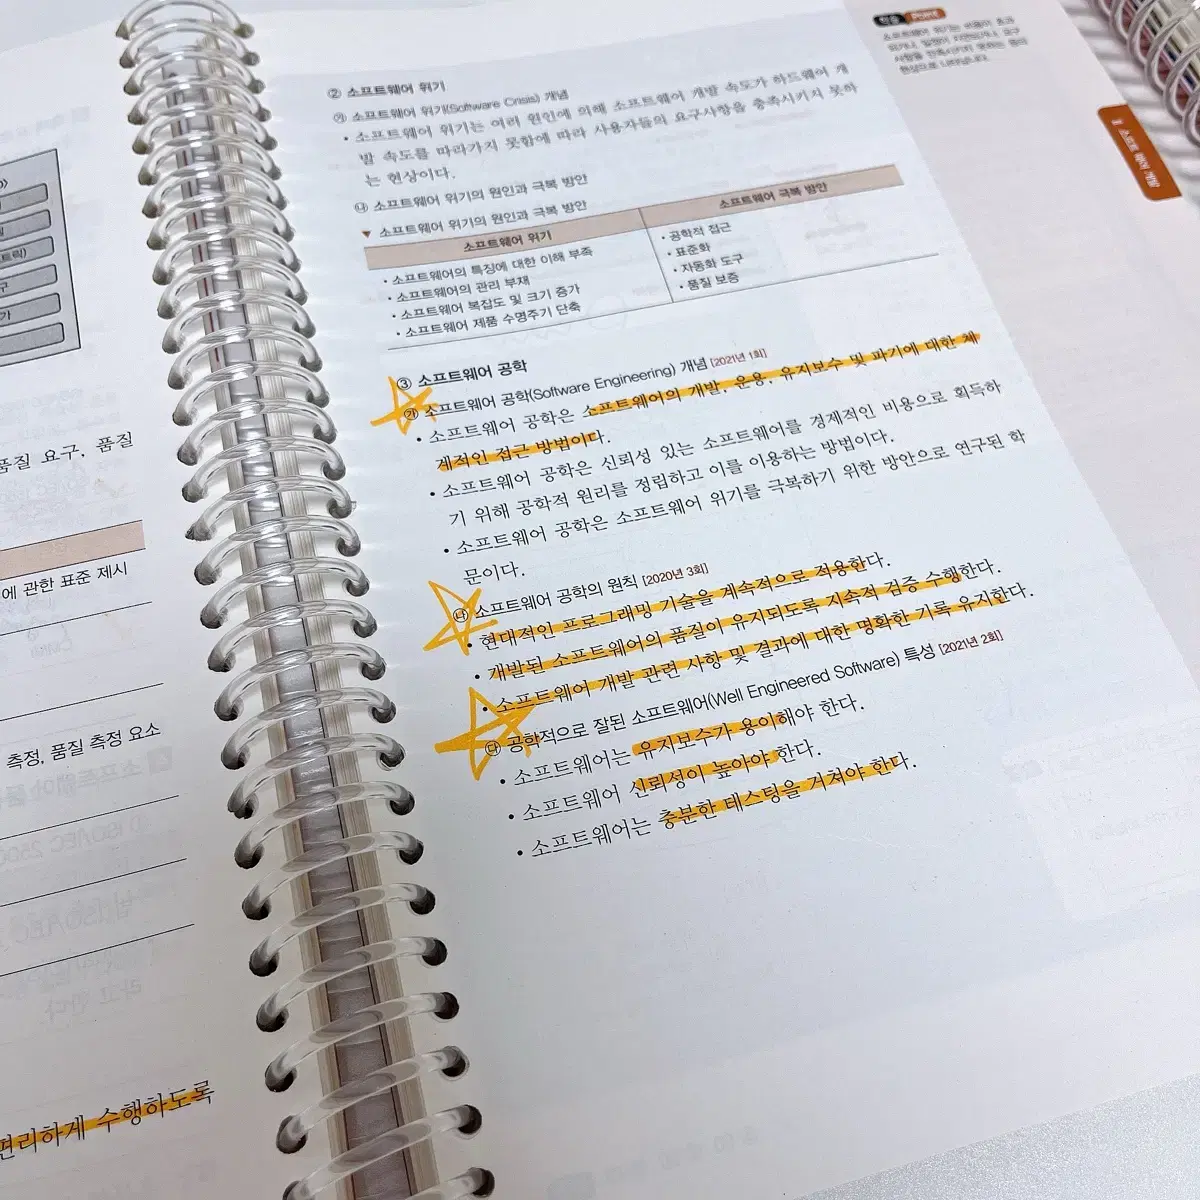 품질 요구, 품질
에 관한 표준 제시
측정, 품질 측정 요소
편리하게 수행하도록
② 소프트웨어 위기
㉮ 소프트웨어 위기(Software Crisis) 개념
• 소프트웨어 위기는 여러 원인에 의해 소프트웨어 개발 속도가 하드웨어 개
발 속도를 따라가지 못함에 따라 사용자들의 요구사항을 충족시키지 못하
는 현상이다.
㉯ 소프트웨어 위기의 원인과 극복 방안
▼ 소프트웨어 위기의 원인과 극복 방안
소프트웨어 위기
• 소프트웨어의 특징에 대한 이해 부족
• 소프트웨어의 관리 부재
• 소프트웨어 복잡도 및 크기 증가
• 소프트웨어 제품 수명주기 단축
소프트웨어 극복 방안
• 공학적 접근
• 표준화
• 자동화 도구
• 품질 보증
③ 소프트웨어 공학
㉮ 소프트웨어 공학(Software Engineering) 개념 [2021년 1회]
• 소프트웨어 공학은 소프트웨어의 개발, 운용, 유지보수 및 파기에 대한 체
계적인 접근 방법이다.
• 소프트웨어 공학은 신뢰성 있는 소프트웨어를 경제적인 비용으로 획득하
기 위해 공학적 원리를 정립하고 이를 이용하는 방법이다.
• 소프트웨어 공학은 소프트웨어 위기를 극복하기 위한 방안으로 연구된 학
문이다.
㉯ 소프트웨어 공학의 원칙 [2020년 3회]
• 현대적인 프로그래밍 기술을 계속적으로 적용한다.
• 개발된 소프트웨어의 품질이 유지되도록 지속적 검증 수행한다.
• 소프트웨어 개발 관련 사항 및 결과에 대한 명확한 기록 유지한다.
㉰ 공학적으로 잘된 소프트웨어(Well Engineered Software) 특성 [2021년 2회]
• 소프트웨어는 유지보수가 용이해야 한다.
• 소프트웨어 신뢰성이 높아야 한다.
• 소프트웨어는 충분한 테스팅을 거쳐야 한다.
학습 Point